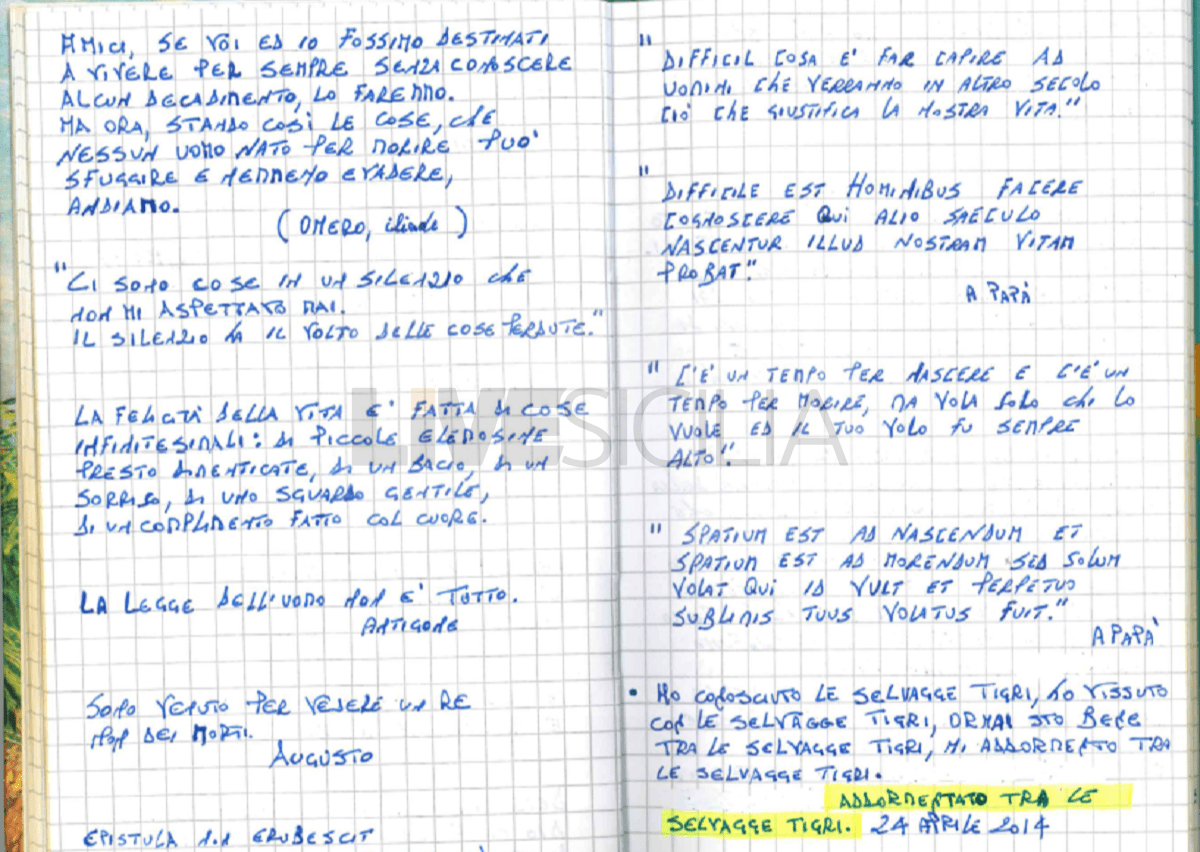 AMICI, SE VOI ED IO FOSSIMO DESTINATI
A VIVERE PER SEMPRE SENZA CONOSCERE
ALCUN DECADIMENTO, LO FAREMMO.
MA ORA, STANDO COSÌ LE COSE, CHE
NESSUN UOMO NATO PER MORIRE PUO'
SFUGGIRE E NEMMENO EVADERE,
ANDIAMO.
(OMERO, iliade)
"CI SONO COSE IN UN SILENZIO CHE
NON MI ASPETTAVO MAI.
IL SILENZIO HA IL VOLTO DELLE COSE PERDUTE."
LA FELICITÀ DELLA VITA E' FATTA DI COSE
INFINITESIMALI: DI PICCOLE ELEMOSINE
PRESTO DIMENTICATE, DI UN BACIO, DI UN
SORRISO, DI UNO SGUARDO GENTILE,
DI UN COMPLIMENTO FATTO COL CUORE.
LA LEGGE DELL'UOMO NON E' TUTTO.
ANTIGONE
SONO VENUTO PER VEDERE UN RE
NON DEI MORTI.
AUGUSTO
EPISTULA NON ERUBESCIT
"
DIFFICIL COSA E' FAR CAPIRE AD
UOMINI CHE VERRANNO IN ALTRO SECOLO
CIÒ CHE GIUSTIFICA LA NOSTRA VITA."
"
DIFFICILE EST HOMINIBUS FACERE
COGNOSCERE QUI ALIO SAECULO
NASCENTUR ILLUD NOSTRAM VITAM
PROBAT."
A PAPÀ
" C'E' UN TEMPO PER NASCERE E C'E' UN
TEMPO PER MORIRE, MA VOLA SOLO CHI LO
VUOLE ED IL TUO VOLO FU SEMPRE
ALTO".
" SPATIUM EST AD NASCENDUM ET
SPATIUM EST AD MORENDUM SED SOLUM
VOLAT QUI ID VULT ET PERPETUO
SUBLIMIS TUUS VOLATUS FUIT."
A PAPÀ
• HO CONOSCIUTO LE SELVAGGE TIGRI, HO VISSUTO
CON LE SELVAGGE TIGRI, ORMAI STO BENE
TRA LE SELVAGGE TIGRI, MI ADDORMENTO TRA
LE SELVAGGE TIGRI.
ADDORMENTATO TRA LE
SELVAGGE TIGRI. 24 APRILE 2014
LIVESICILIA